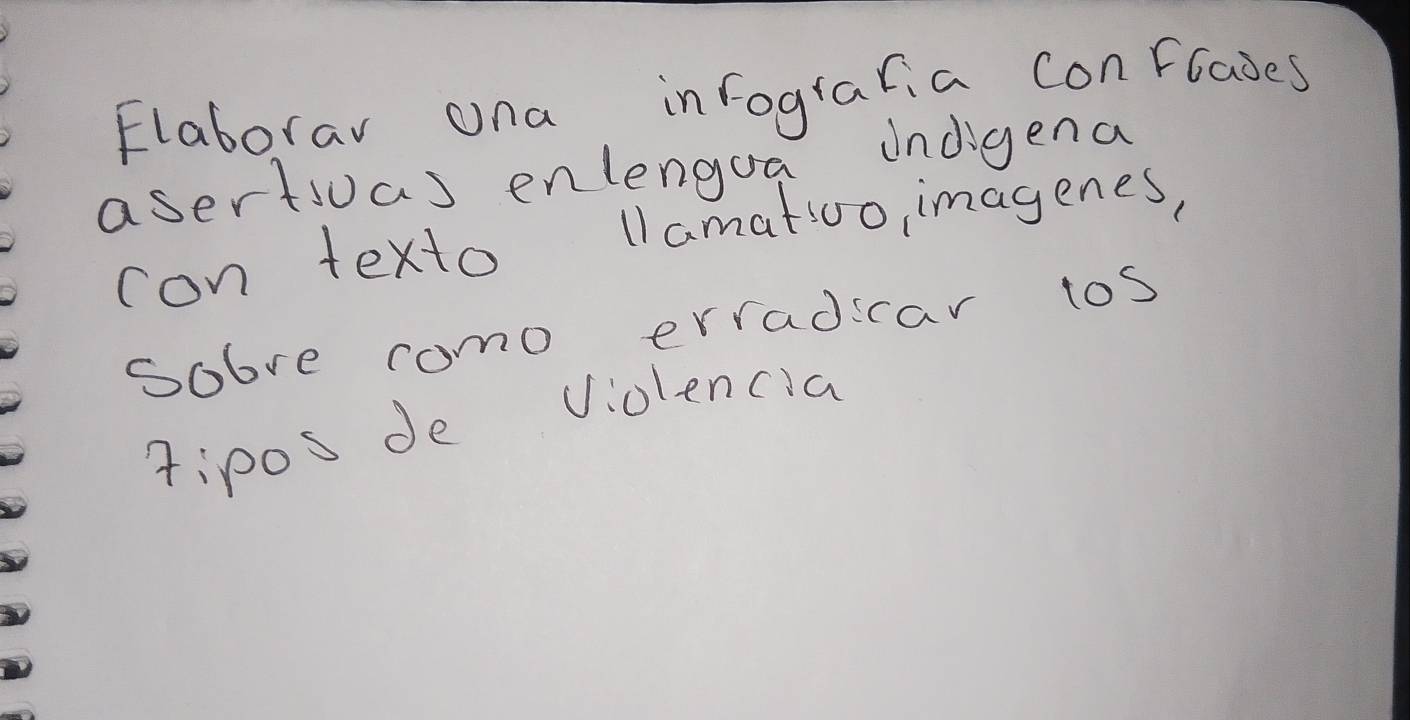 Elaborar una infografia con frases
asertivas en lengua indigena
con texto llamativo, imagenes,
sobre como erradicar los
tipos de violencia